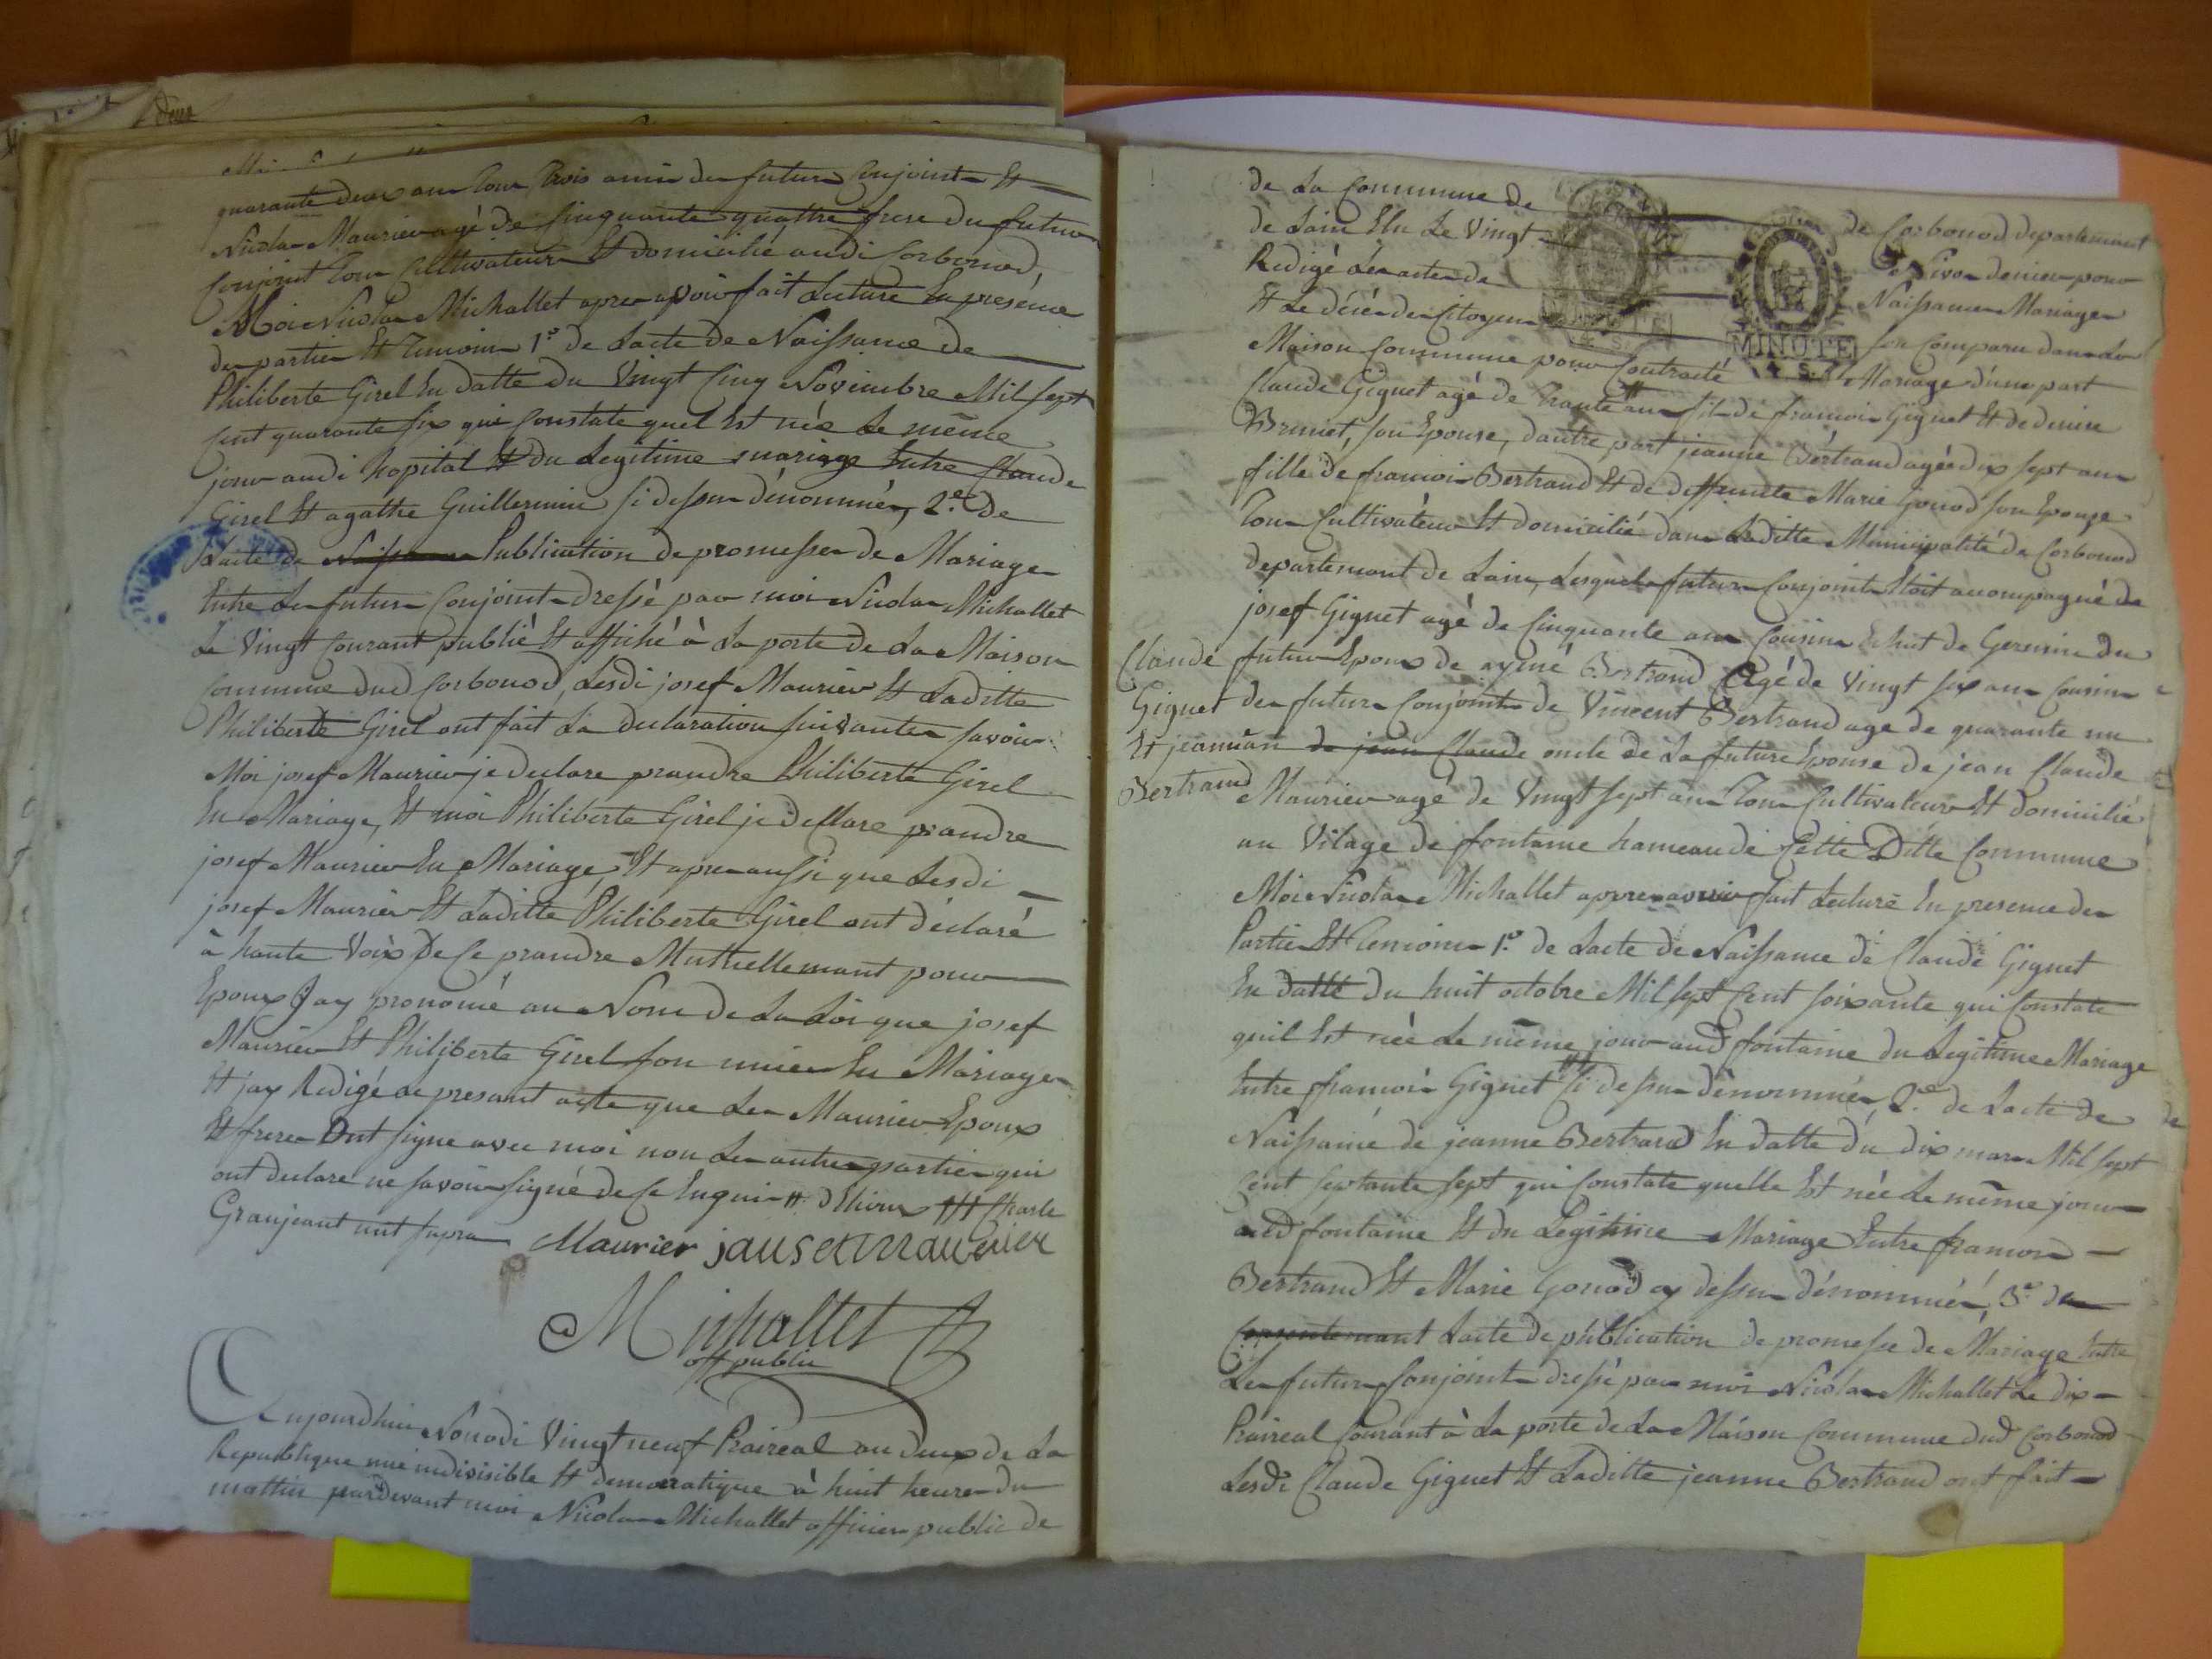 quarante deux ans tous trois amis des futurs Conjoints Et
Nicolas Maurier agé de Cinquante quattre frere du futur
Conjoint tous Cultivateurs Et domicilié audi Corbonod,
Moi Nicolas Michallet apres avoir fait Lecture En presence
des parties Et temoins 1° de Lacte de Naissance de
Philiberte Girel En datte du Vingt Cinq Novembre Mil Sept
Cent quarante Six qui Constate quel Est née Le même
jour audi hopital Et du Legitime mariage Entre Claude
Girel Et agathe Guillermin Si dessus dénommés, 2.e de
Lacte de Naissance Publication de promesses de Mariage
Entre Les futurs Conjoints dressé par moi Nicolas Michallet
Le Vingt Courant publié Et affiché à La porte de La Maison
Commune dud Corbonod, Lesdi josef Maurier Et Laditte
Philiberte Girel ont fait La declaration Suivantes Savoir
Moi josef Maurier je declare prandre Philiberte Girel
En Mariage, Et moi Philiberte Girel je declare prandre
josef Maurier En Mariage, Et apres aussi que Lesdi
josef Maurier Et Laditte Philiberte Girel ont déclaré
à haute Voix de Ce prandre Mutuellemant pour
Epoux Jay prononcé au Nom de La Loi que josef
Maurier Et Philiberte Girel Son unies En Mariage
Et jay Redigé Le presant acte que Les Maurier Epoux
Et frere Ont Signe avec moi non Les autres parties qui
ont declare ne Savoir Signé de Ce Enquis
Granjeant ut Supra Maurier
Michallet
off public
Aujourdhui Nonodi Vingt neuf Praireal an deux de La
Republique une indivisible Et democratique à huit heures du
mattin pardevant moi Nicolas Michallet officier public de
de La Commune de de Corbonod departement
de Lain Elu Le Vingt Nivos denier pour
Redigé Les actes de Naissances Mariages
Et Le décés des Citoyens Son Comparu dans La
MINUTE
4. S.
Maison Commune pour Contracté Mariage d'une part
Claude Gignet agé de trante ans fils de francois Gignet Et de denise
Brunet, Son Epouse, dautre part jeanne Bértrand agée dix Sept ans
fille de francois Bertrand Et de deffuncte Marie Gonod Son Epouze
tous Cultivateur Et domicilié dans Laditte Municipalité de Corbonod
departemant de Lain, Lesquels futurs Conjoints Etoit accompagné de
josef Gignet agé de Cinquante ans Cousin de Germin du
Claude futur Epoux de aymé Bertrand agé de Vingt Six ans Cousin
Gignet des futurs Conjoints de Vincent Bertrand age de quarante un
Et jeanne ans de jean Claude oncle de La future Epouse de jean Claude
Bertrand Maurier agé de Vingt Sept ans tous Cultivateurs Et domicilié
au Vilage de fontaine hameau de Cette Ditte Commune
Moi Nicolas Michallet appres avoir fait Lecture En presence des
Parties Et temoins 1.° de Lacte de Naissance de Claude Gignet
En datte du huit octobre Mil Sept Cent Soixante qui Constate
quil Est née Le même jour aud fontaine du Legitime Mariage
Entre francois Gignet Si dessus dénommés, 2.e de Lacte de
Naissance de jeanne Bertrand En datte du dix mars Mil Sept
Cent Septante Sept qui Constate quelle Est née Le même jour
aud fontaine Et du Legitime Mariage Entre francois
Bertrand Et Marie Gonod cy dessus dénommés, 3.e de
Consentemant Lacte de publication de promesse de Mariage Entre
Les futurs Conjoints dressé par moi Nicolas Michallet Le dix
Praireal Courant à La porte de La Maison Commune dud Corbonod
Lesdi Claude Gignet Et Laditte jeanne Bertrand ont fait